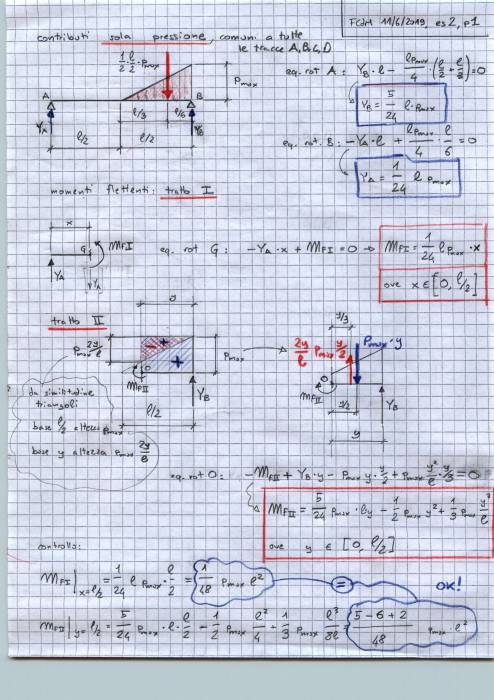 FCdM 11/6/2019, es 2, p1
contributi sola pressione, comuni a tutte
le tracce A,B,C,D
1/2 l/2 · Pmax
Pmax
A
B
l/3 l/6
YA
YB
l/2 l/2
eq. rot A: YB·l - lPmax/4 · (l/2 + l/3) = 0
YB = 5/24 l·Pmax
eq. rot. B: -YA·l + lPmax/4 · l/6 = 0
YA = 1/24 l Pmax
momenti flettenti: tratto I
x
G
MFI
YA
YA
eq. rot G: -YA·x + MFI = 0 → MFI = 1/24 l Pmax · x
ove x ∈ [0, l/2]
tratto II
Pmax 2y/l
- +
+
Pmax
O
MFII
YB
l/2
y/3
2y/l Pmax y/2
Pmax·y
O
MFII
y/2
YB
y
da similitudine
triangoli
base l/2 altezza Pmax
base y altezza Pmax 2y/l
eq. rot O: -MFII + YB·y - Pmax y·y/2 + Pmax y²/l · y/3 = 0
MFII = 5/24 Pmax · ly - 1/2 Pmax y² + 1/3 Pmax y³/l
ove y ∈ [0, l/2]
controllo:
MFI|x=l/2 = 1/24 l Pmax · l/2 = 1/48 Pmax l²
=
OK!
MFII|y=l/2 = 5/24 Pmax · l · l/2 - 1/2 Pmax l²/4 + 1/3 Pmax l³/8l = 5-6+2/48 qmax · l²